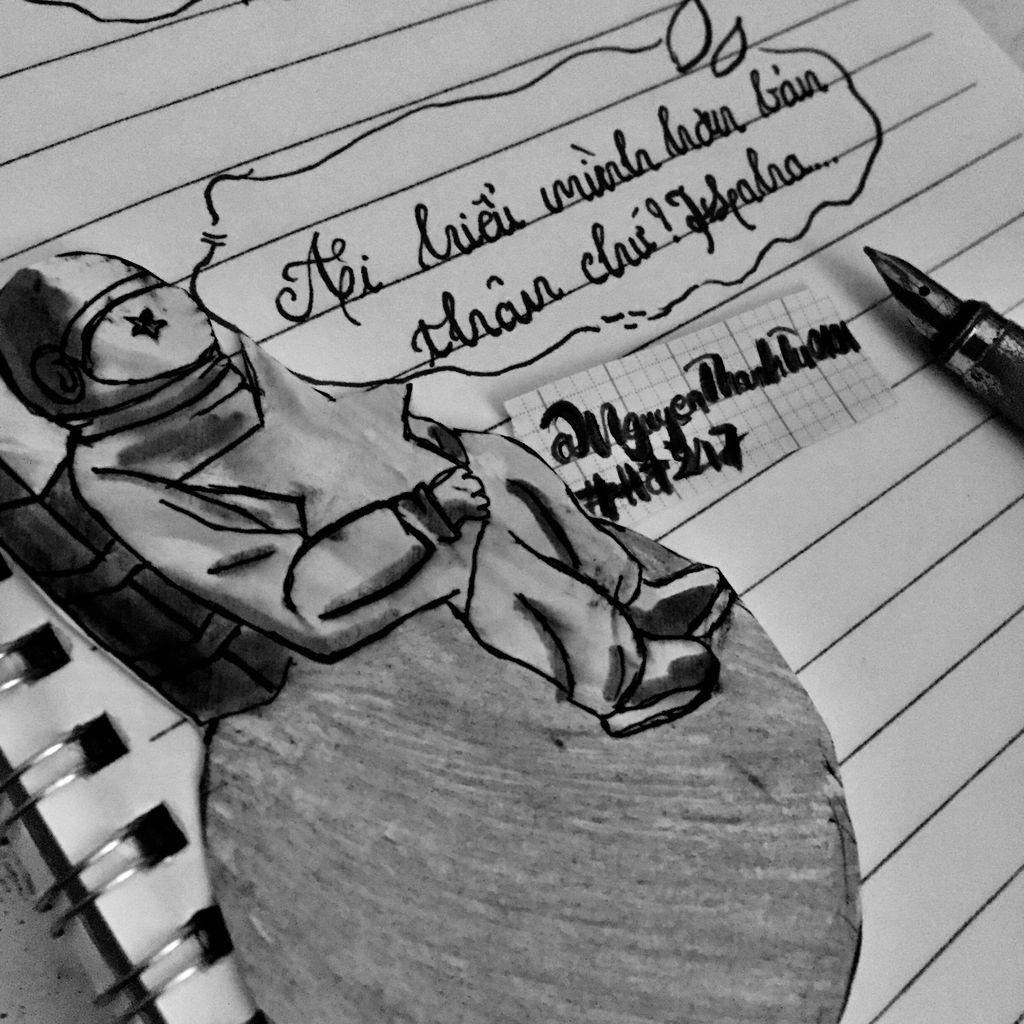 Ai hiểu mình hơn bản
thân chứ? Jskpaha....
@NguyenThanhTuan
#HT217